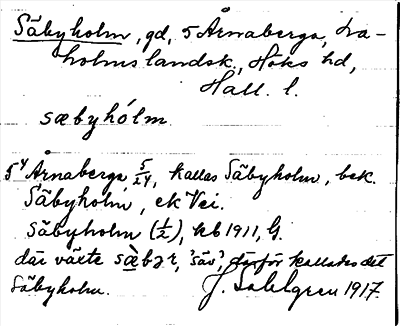 Säbyholm, gd, 5 Årnaberga, Ra-
holms landsk., Höks hd,
Hall. l.
sæbyhólm
5⁴ Årnaberga 5/24, kallas Säbyholm, bek.
Säbyholm, ek Vei.
Säbyholm (1/2), kb 1911, G.
där växte sæ̀bɟr, 'säv', därför kallades det
Säbyholm. J. Sahlgren 1917.